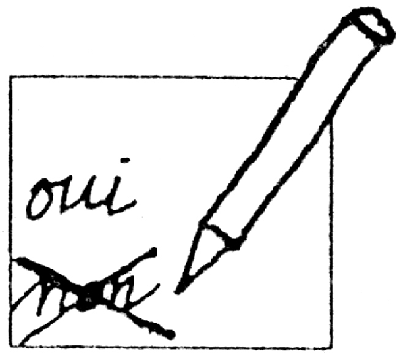 oui
non